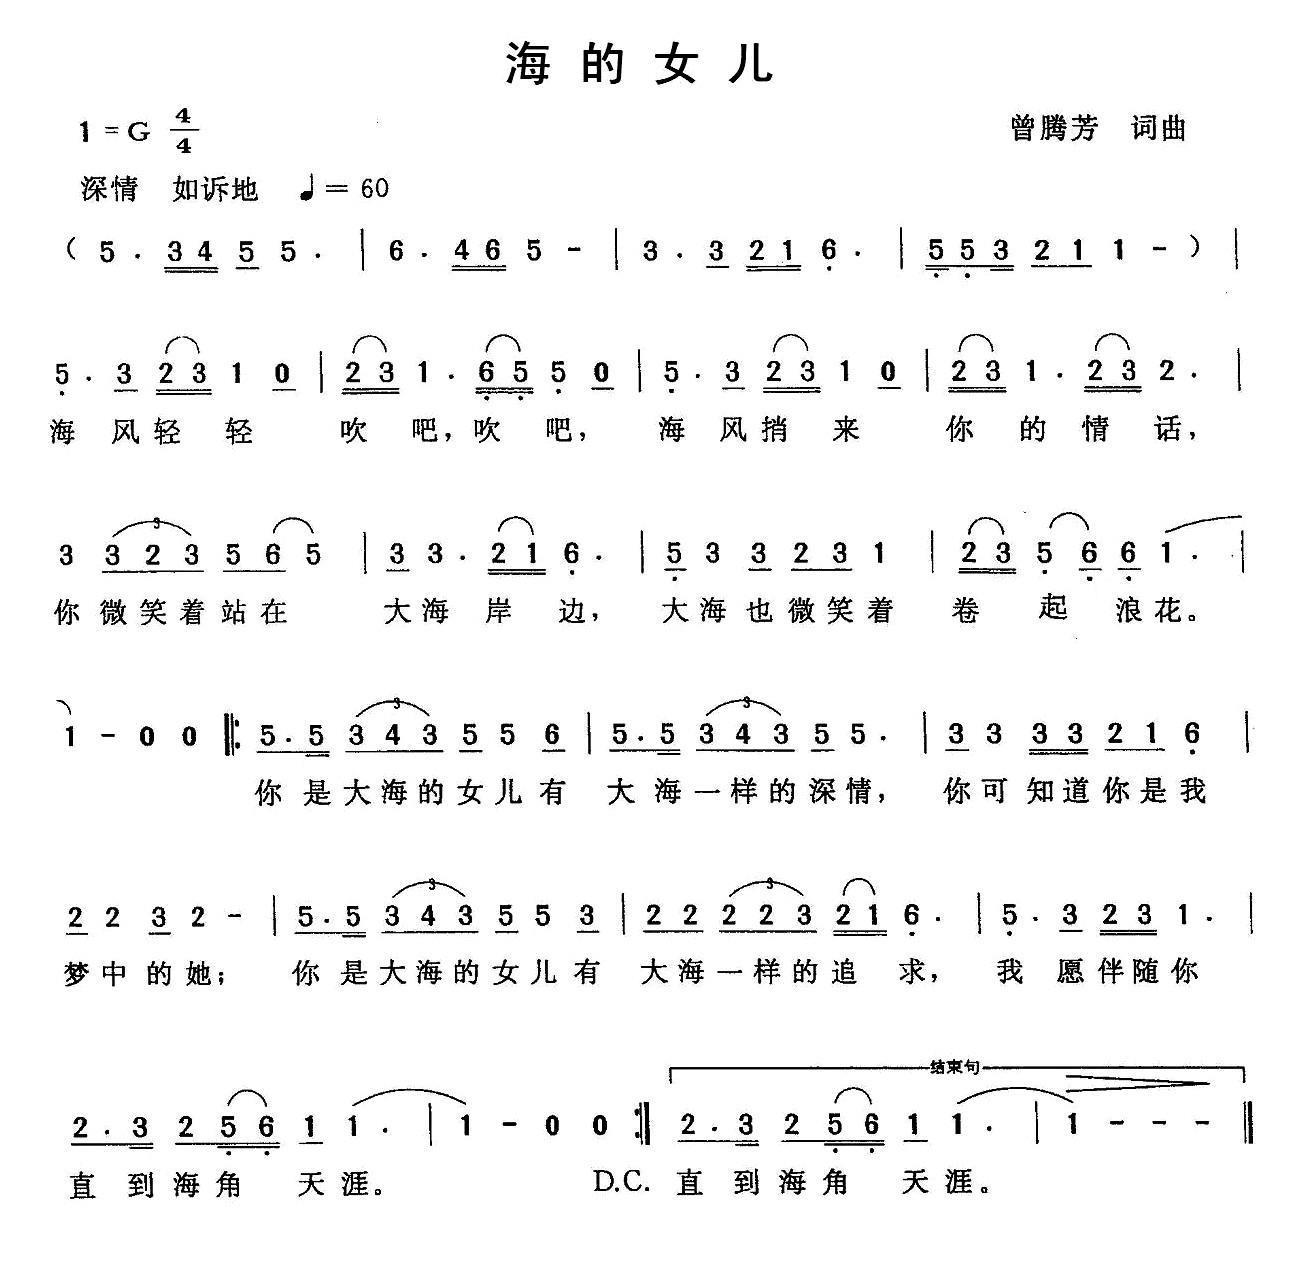 海的女儿
1=G 4/4
曾腾芳 词曲
深情 如诉地 ♩=60
( 5 . 3 4 5 5 . | 6 . 4 6 5 - | 3 . 3 2 1 6 . | 5 5 3 2 1 1 - ) |
5 . 3 2 3 1 0 | 2 3 1 . 6 5 5 0 | 5 . 3 2 3 1 0 | 2 3 1 . 2 3 2 . |
海 风 轻 轻 吹 吧, 吹 吧, 海 风 捎 来 你 的 情 话,
3 3 2 3 5 6 5 | 3 3 . 2 1 6 . | 5 3 3 2 3 1 | 2 3 5 6 6 1 . |
你 微 笑 着 站 在 大 海 岸 边, 大 海 也 微 笑 着 卷 起 浪 花。
1 - 0 0 ‖: 5 . 5 3 4 3 5 5 6 | 5 . 5 3 4 3 5 5 . | 3 3 3 3 2 1 6 |
你 是 大 海 的 女 儿 有 大 海 一 样 的 深 情, 你 可 知 道 你 是 我
2 2 3 2 - | 5 . 5 3 4 3 5 5 3 | 2 2 2 2 3 2 1 6 . | 5 . 3 2 3 1 . |
梦 中 的 她; 你 是 大 海 的 女 儿 有 大 海 一 样 的 追 求, 我 愿 伴 随 你
结束句
2 . 3 2 5 6 1 1 . | 1 - 0 0 :‖ 2 . 3 2 5 6 1 1 . | 1 - - - ‖
直 到 海 角 天 涯。 D.C. 直 到 海 角 天 涯。